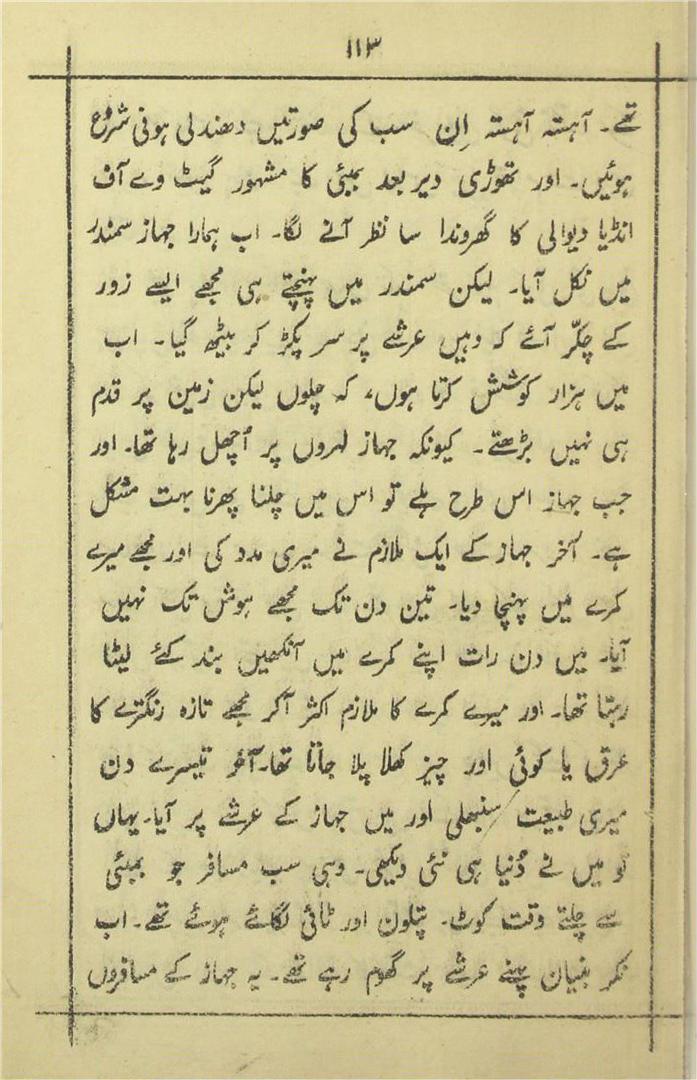 ۱۱۳
تھے۔ آہستہ آہستہ اِن سب کی صورتیں دھندلی ہونی شروع
ہوئیں۔ اور تھوڑی دیر بعد بمبئی کا مشہور گیٹ وے آف
انڈیا دیوالی کا گھروندا سا نظر آنے لگا۔ اب ہمارا جہاز سمندر
میں نکل آیا۔ لیکن سمندر میں پہنچتے ہی مجھے ایسے زور
کے چکّر آئے کہ وہیں عرشے پر سر پکڑ کر بیٹھ گیا۔ اب
میں ہزار کوشش کرتا ہوں، کہ چلوں لیکن زمین پر قدم
ہی نہیں بڑھتے۔ کیونکہ جہاز لہروں پر اُچھل رہا تھا۔ اور
جب جہاز اس طرح ہلے تو اس میں چلنا پھرنا بہت مشکل
ہے۔ آخر جہاز کے ایک ملازم نے میری مدد کی اور مجھے میرے
کمرے میں پہنچا دیا۔ تین دن تک مجھے ہوش تک نہیں
آیا۔ میں دن رات اپنے کمرے میں آنکھیں بند کئے لیٹا
رہتا تھا۔ اور میرے کمرے کا ملازم اکثر آکر مجھے تازہ رنگترے کا
عرق یا کوئی اور چیز کھلا پلا جاتا تھا۔ آخر تیسرے دن
میری طبیعت سنبھلی اور میں جہاز کے عرشے پر آیا۔ یہاں
تو میں نے دُنیا ہی نئی دیکھی۔ وہی سب مسافر جو بمبئی
سے چلتے وقت کوٹ۔ پتلون اور ٹائی لگائے ہوئے تھے۔ اب
نکر بنیان پہنے عرشے پر گھوم رہے تھے۔ یہ جہاز کے مسافروں